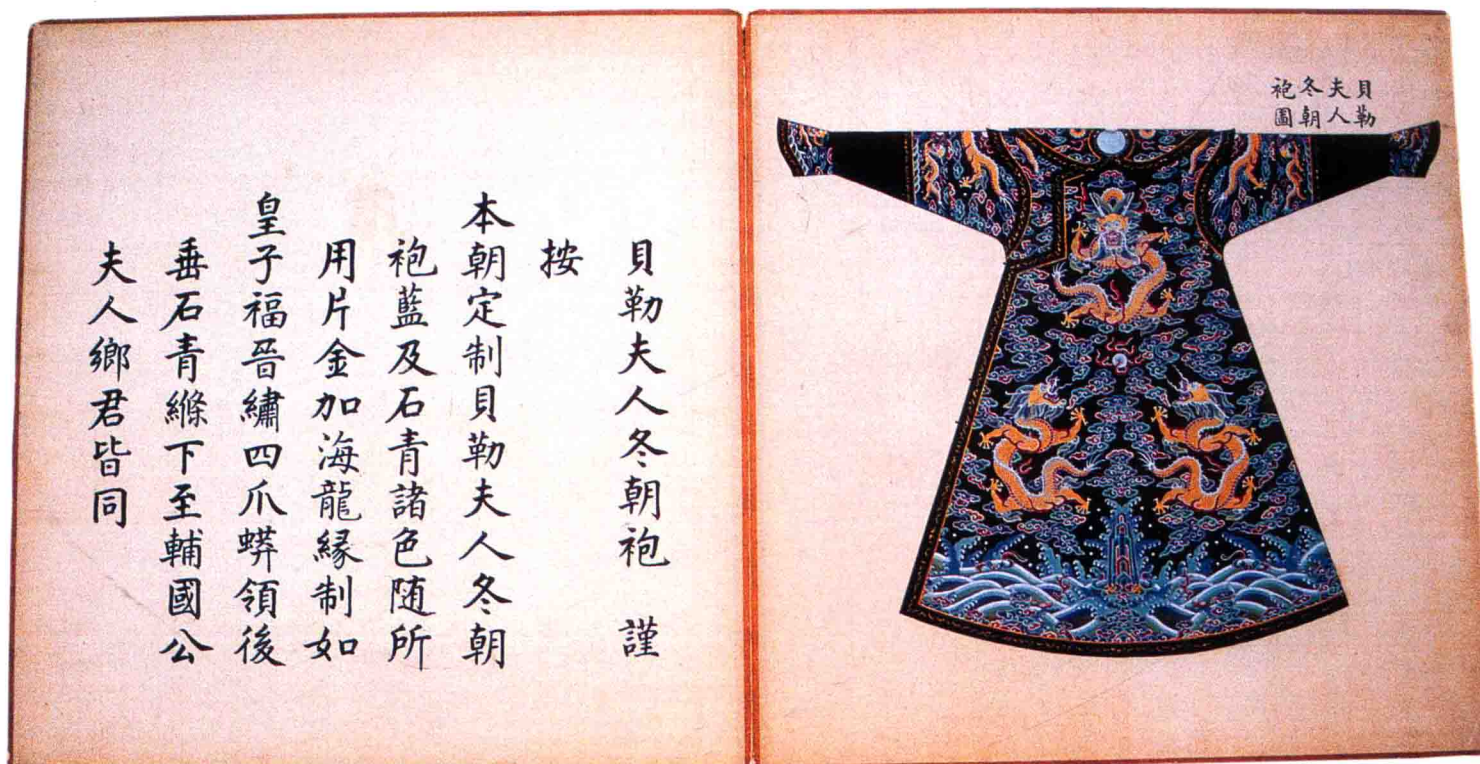 貝勒
夫人
冬朝
袍圖
貝勒夫人冬朝袍 謹
按
本朝定制貝勒夫人冬朝
袍藍及石青諸色随所
用片金加海龍緣制如
皇子福晉繡四爪蟒領後
垂石青縧下至輔國公
夫人鄉君皆同